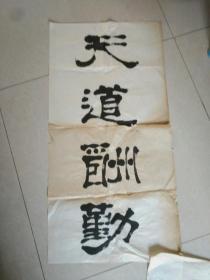 天
道
酬
勤